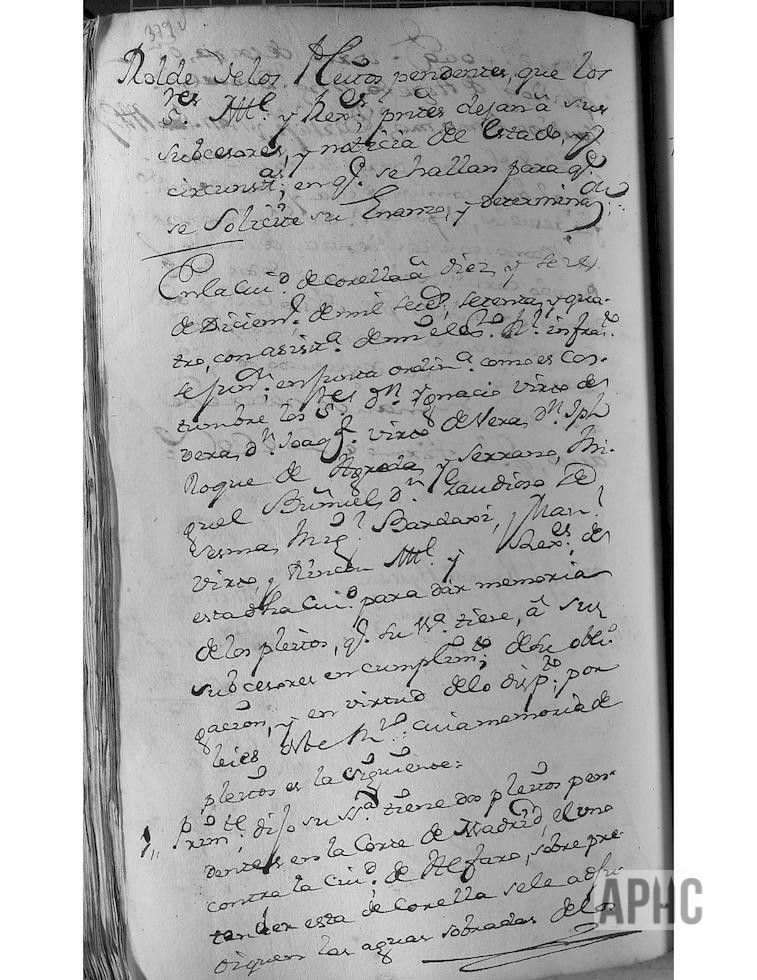 379v
Rolde de los Pleitos pendentes, que los
S.res Alld.s y Rex.es pntes dejan â sus
subcesores, y noticia del estado, y
circunst.as en q.e se hallan para q.e
se Solicite su Enanzo, y determina.on
En la Ciu.d de Corella â diez, y seis
de Diciem.e de mil setec.s setenta, y qua-
tro, con asist.a de mi el Es.no R.l infras-
to
se junt.n en junta ordin.a como es cos-
tumbre los S.res D.n Ygnacio Virto de
vera, d.n Joaq.n Virto de Vera, D.n Jph
Roque de Agreda, y Serrano, Mi-
guel Buñuel, d.n Claudioso de
Sesma, Mig.l Bardaxi, y Man.l
Virto, y Rincon All.s y Rex.es de
esta dha Ciu.d para dar memoria
de los pleitos, q.e su S.ria tiene, â sus
subcesores en cumplim.to de su obli-
gacion, y en virtud de lo disp.to por
leies de este R.no: cuia memoria de
pleitos es la siguiente:
1,, Prim.te dijo su S.ria tiene dos pleitos pen-
dentes en la Corte de Madrid, el uno
contra la Ciu.d de Alfaro, sobre pre-
tender esta de Corella se le adju-
diquen las aguas sobradas de los
APHC